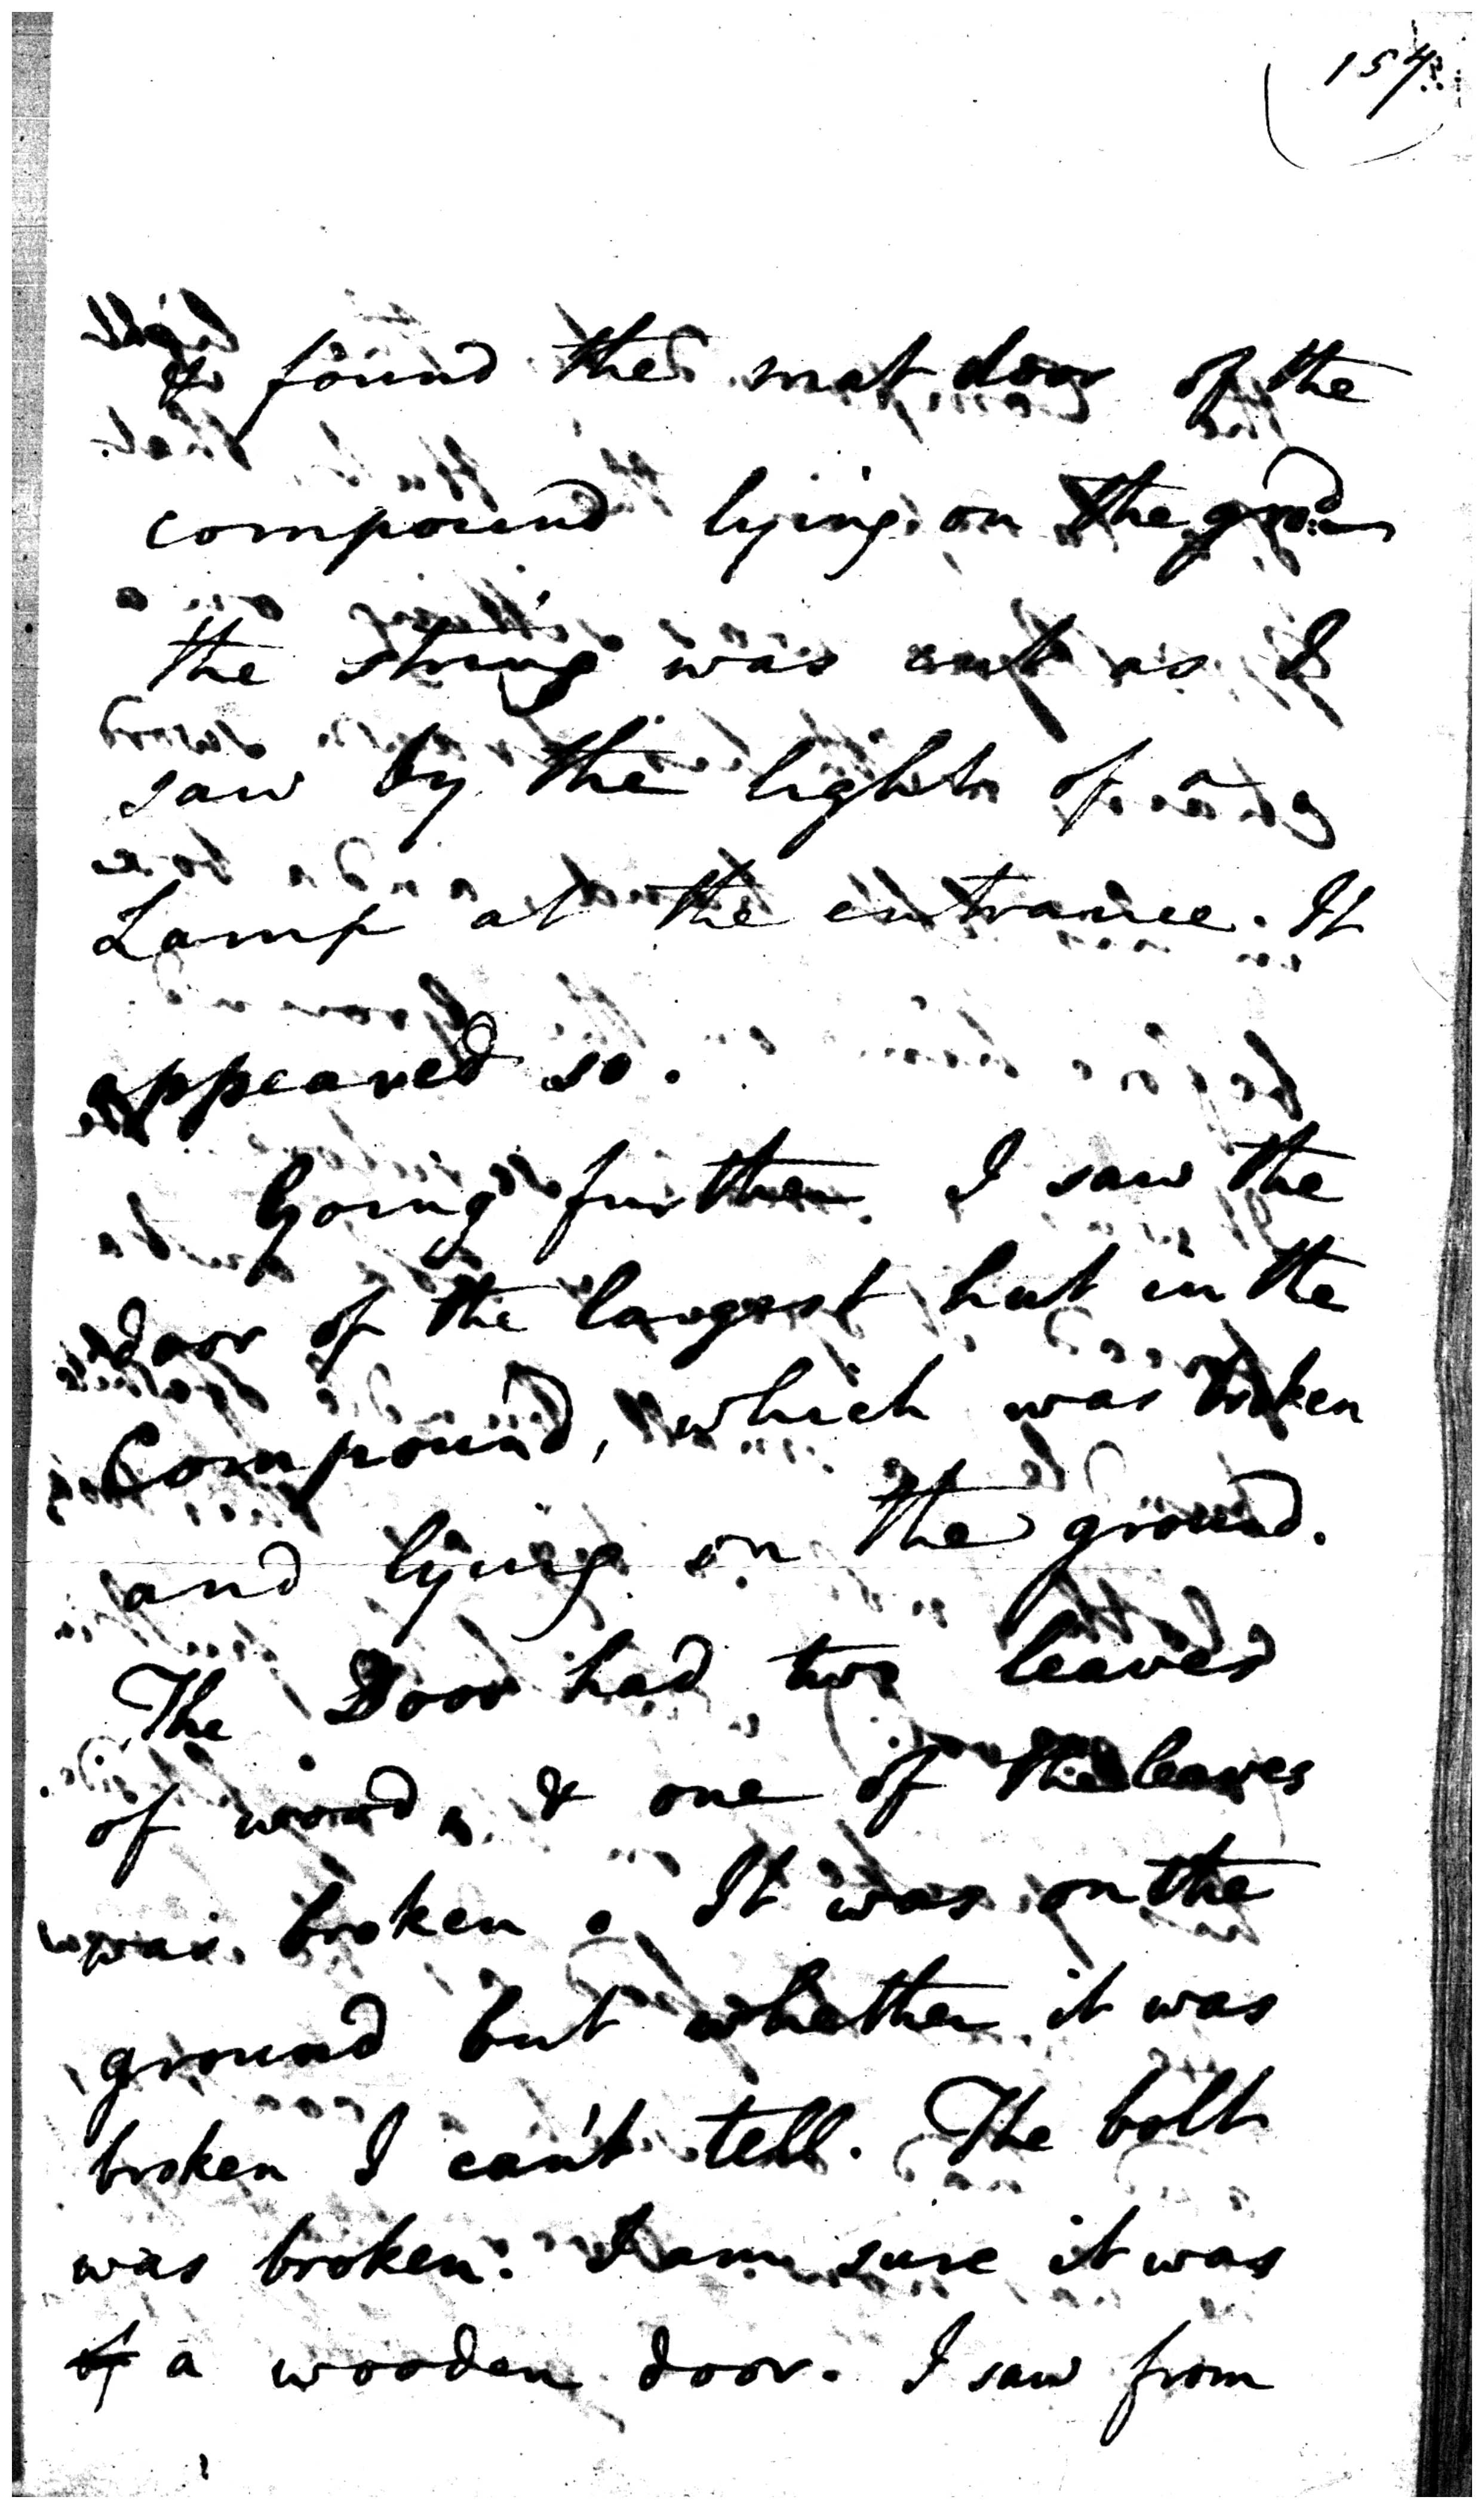 154
I found the mat door of the
compound lying on the ground
the string was cut as I
saw by the light of a
Lamp at the entrance. It
appeared so.
Going further I saw the
door of the largest hut in the
Compound, which was broken
and lying on the ground.
The Door had two leaves
of wood, & one of the leaves
was broken. It was on the
ground but whether it was
broken I can't tell. The bolt
was broken. I am sure it was
of a wooden door. I saw from